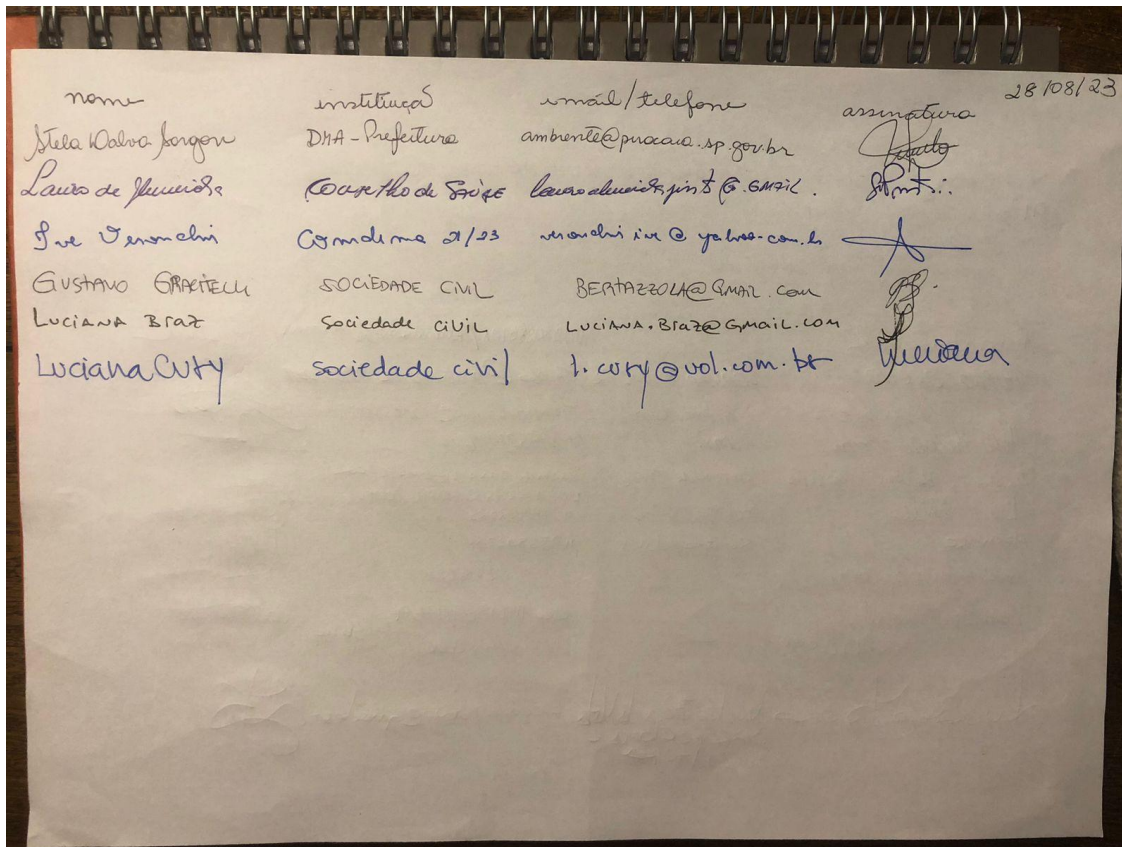 28/08/23
nome instituiçã email/telefone assinatura
Stela Dalva Sorgon DMA-Prefeitura ambiente@piracaia.sp.gov.br
Lauro de Almeida Conselho de Saúde lauroalmeidapinto@.GMAIL.
Ive Veronchi Comdema 21/23 veronchi ive@yahoo.com.br
GUSTAVO GRACITELLI SOCIEDADE CIVIL BERTAZZOLA@GMAIL.COM
LUCIANA BRAZ Sociedade CIVIL LUCIANA.BRAZ@GMAIL.COM
Luciana Cury sociedade civil l.cury@uol.com.br Luciana